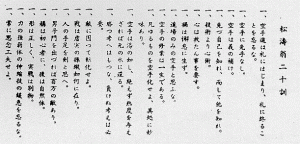 松涛翁二十訓
一、空手道は礼に始まり、礼に終ることを忘るな。
一、空手に先手なし。
一、空手は義の補け。
一、先づ自己を知れ、而して他を知れ。
一、技術より心術。
一、心は放たん事を要す。
一、禍は懈怠に生ず。
一、道場のみの空手と思ふな。
一、空手の修業は一生である。
一、凡ゆるものを空手化せよ、其処に妙味あり。
一、空手は湯の如し、絶えず熱度を与えざれば元の水に還る。
一、勝つ考へはもつな、負けぬ考へは必要。
一、敵に因って転化せよ。
一、戦は虚実の操縦如何に在り。
一、人の手足を剣と思へ。
一、男子門を出づれば百万の敵あり。
一、構は初心者に、後は自然体。
一、形は正しく、実戦は別物。
一、力の強弱、体の伸縮、技の緩急を忘るな。
一、常に思念工夫せよ。